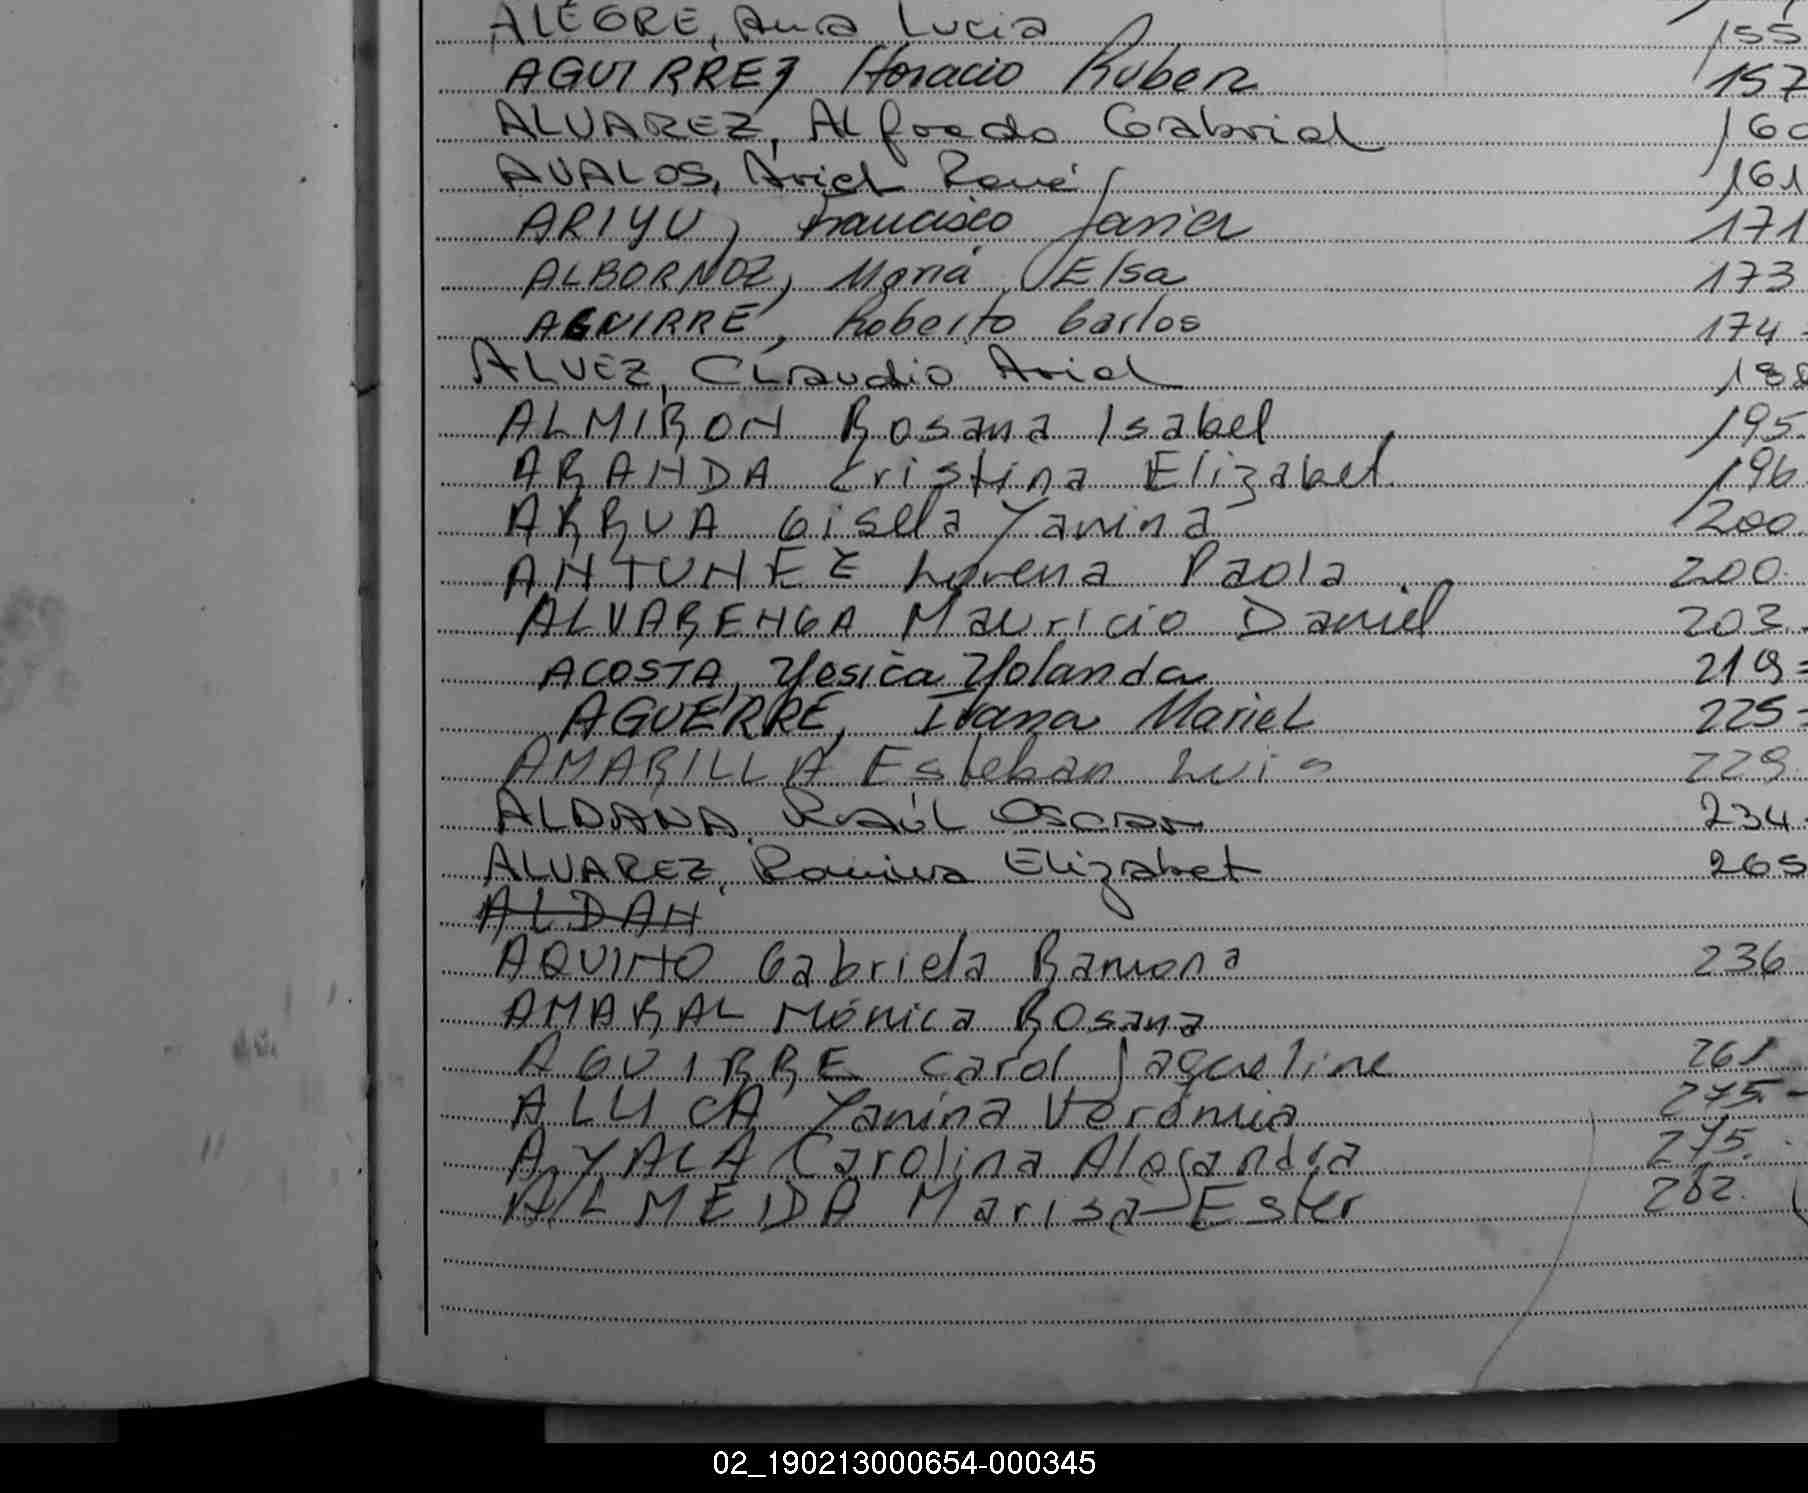 ALEGRE, Ana Lucia 155
AGUIRREZ Horacio Ruben 157
ALVAREZ, Alfredo Gabriel 160
AVALOS, Ariel René 161
ARIYU, Francisco Javier 171
ALBORNOZ, María Elsa 173
AGUIRRE, Roberto Carlos 174
ALVEZ, Claudio Ariel
ALMIRON Rosana Isabel 195
ARANDA Cristina Elizabet 196
ARRUA Gisela Yanina 200
ANTUNEZ Lorena Paola 200
ALVARENGA Mauricio Daniel 203
ACOSTA, Yesica Yolanda 219
AGUERRE, Ivana Mariel 225
AMARILLA Esteban Luis 229
ALDANA, Raúl Oscar 234
ALVAREZ, Romina Elizabet 265
ALDAN
AQUINO Gabriela Ramona 236
AMARAL Mónica Rosana
AGUIRRE Carol Jaqueline 261
Yanina Verónica 275
AYALA Carolina Alejandra 275
ALMEIDA Marisa Ester 282
02_190213000654-000345